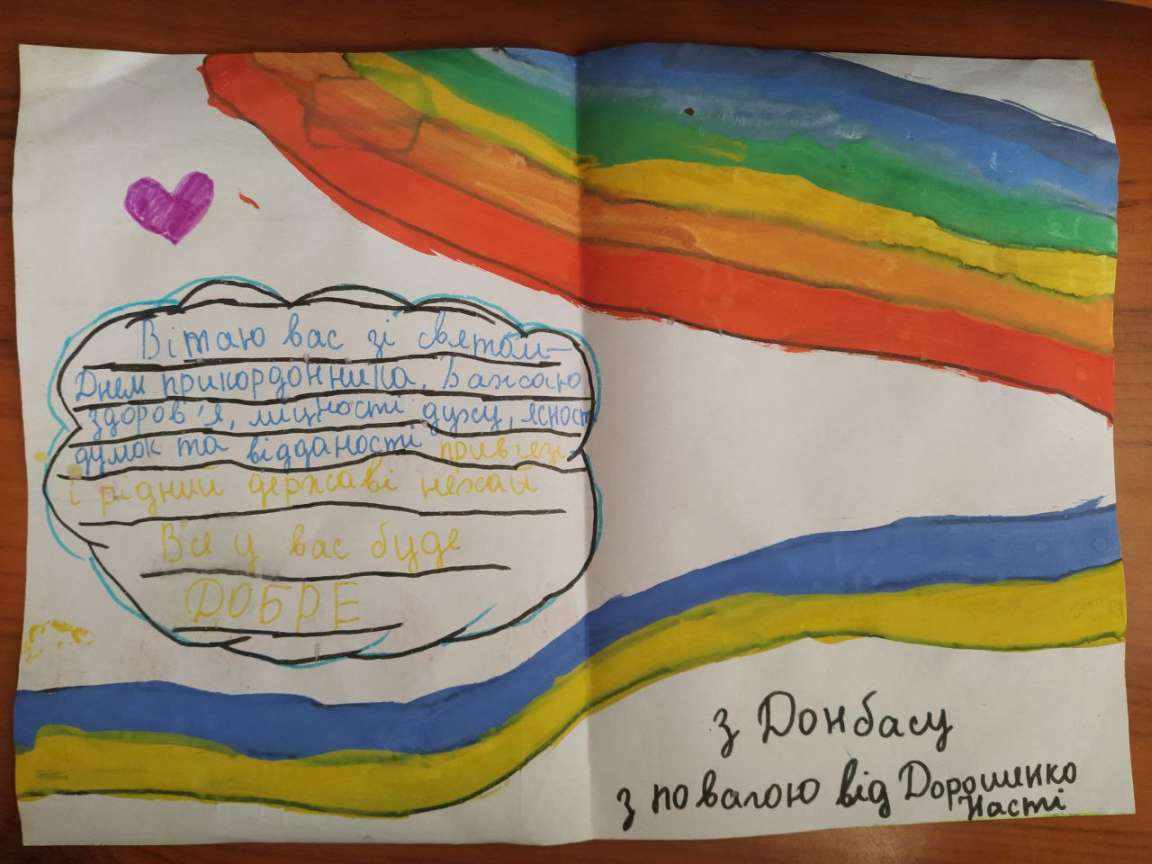 Вітаю вас зі святом-
Днем прикордонника. Бажаю
здоров'я, міцності духу, ясност
думок та відданості
і рідний державі нехай
Все у вас буде
ДОБРЕ
з Донбасу
з повагою від Дорошенко
Насті